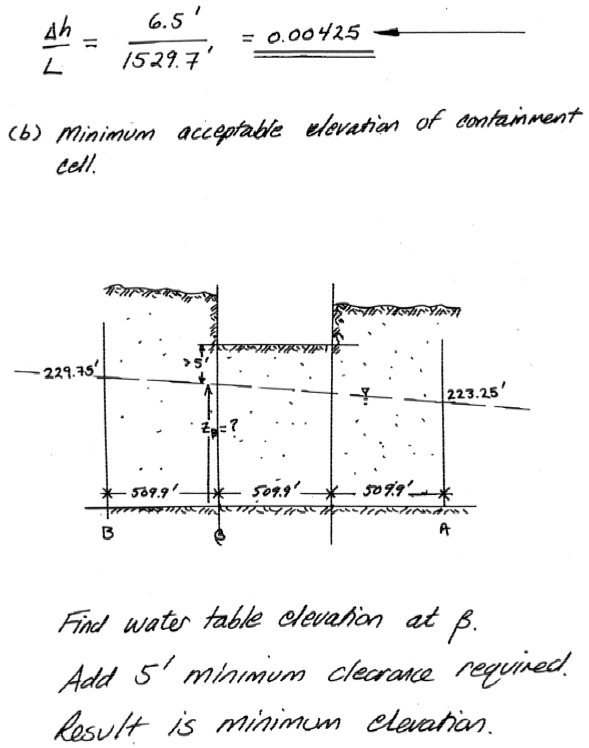 Δh / L = 6.5' / 1529.7' = 0.00425
(b) Minimum acceptable elevation of containment
cell.
>5'
229.75'
223.25'
Zβ = ?
509.9' 509.9' 509.9'
B β A
Find water table elevation at β.
Add 5' minimum clearance required.
Result is minimum elevation.